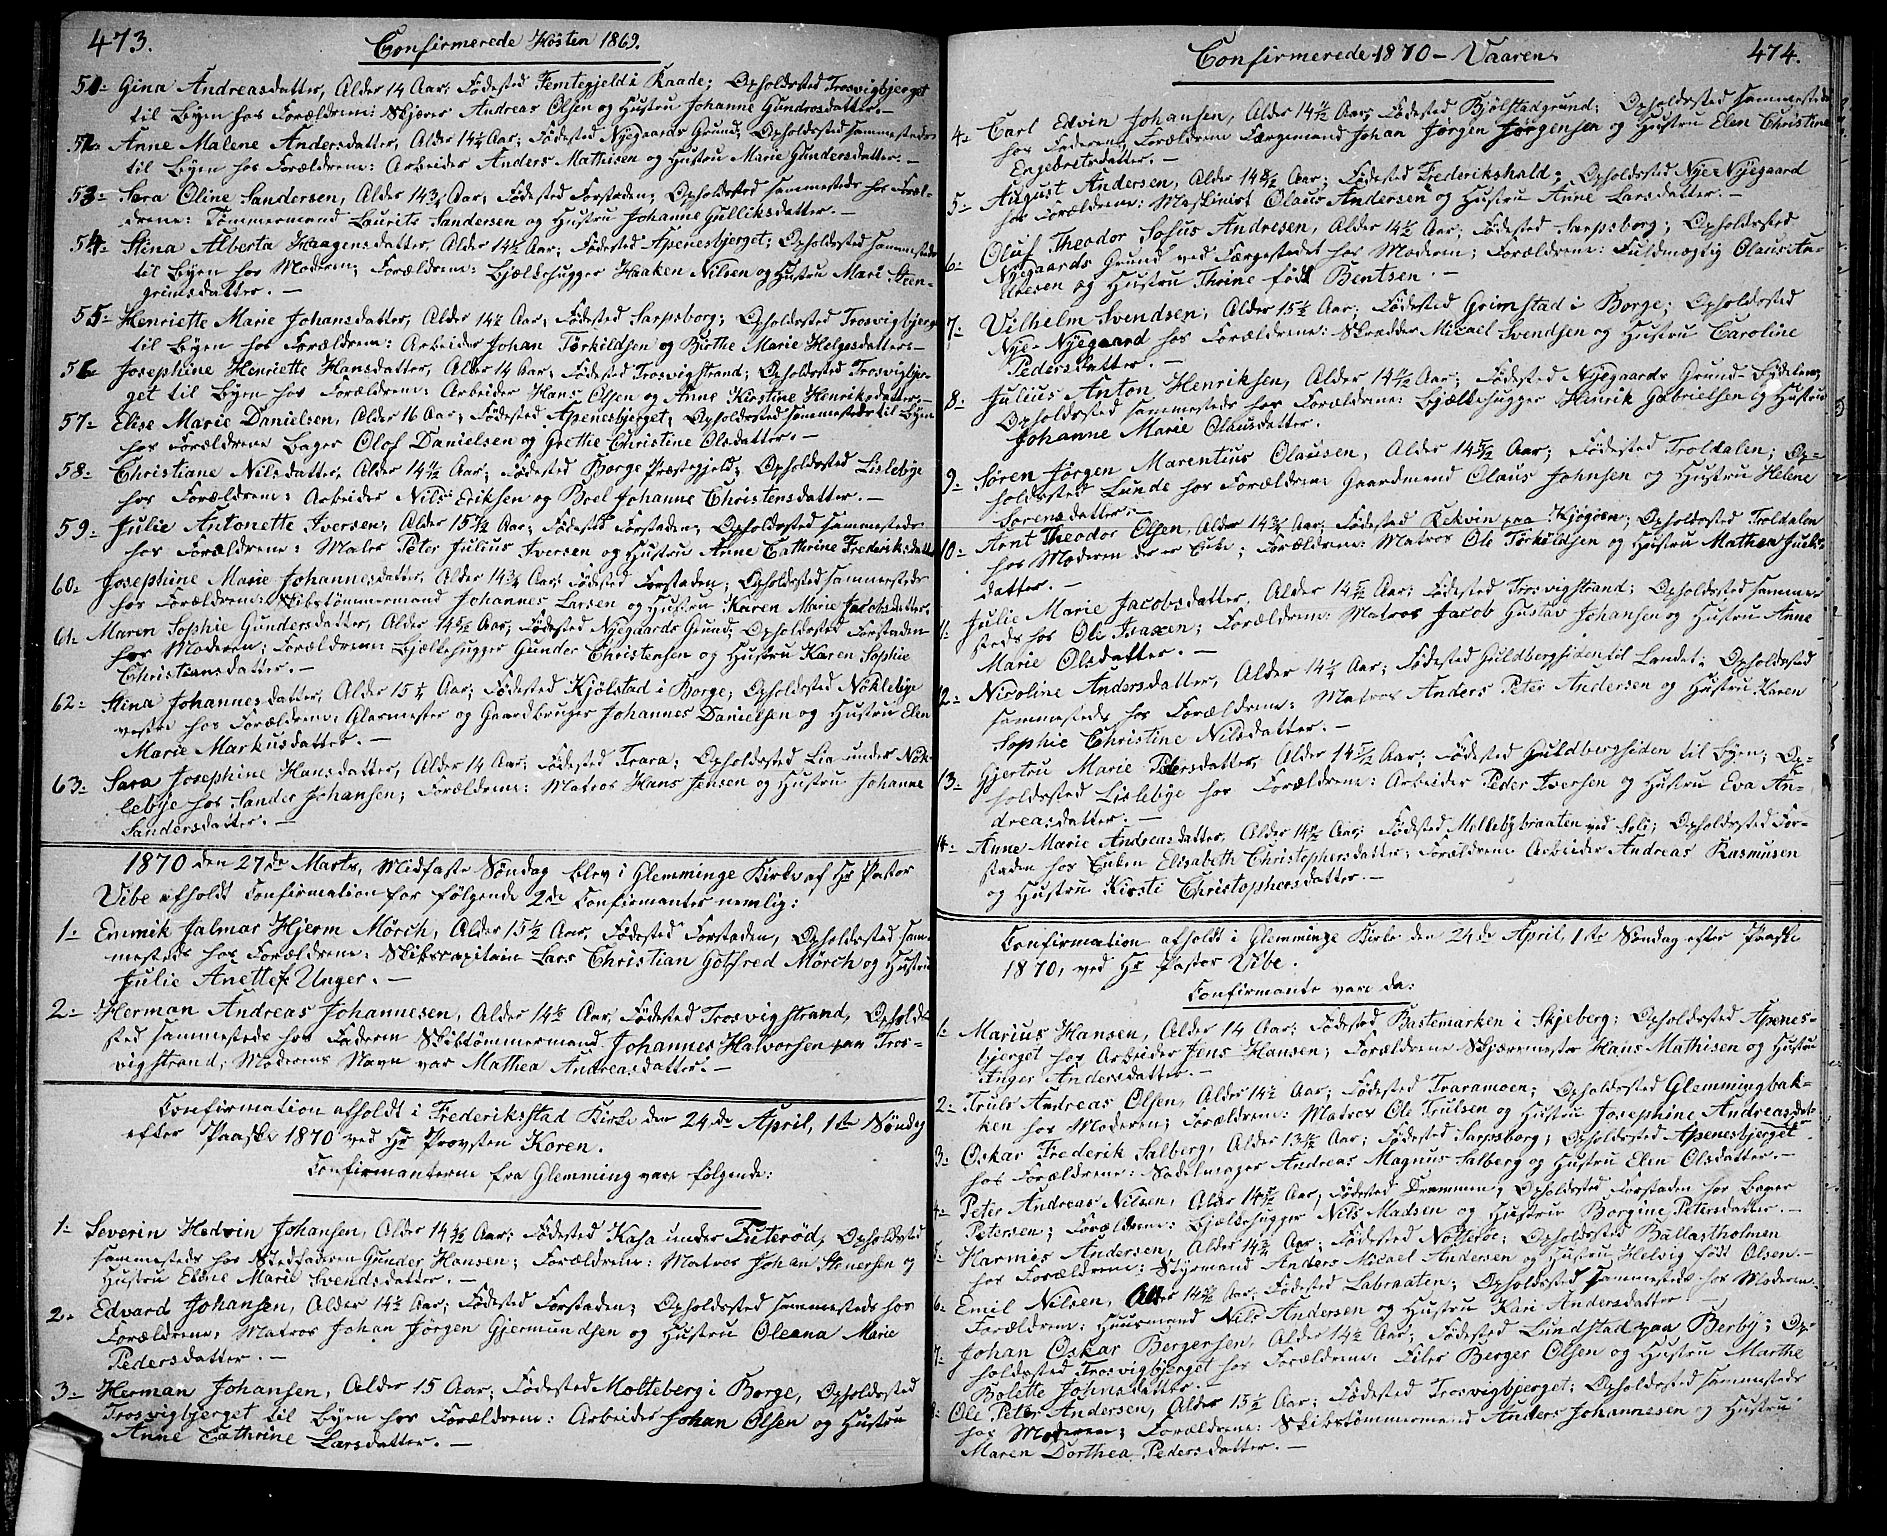 473.
Confirmerede Høsten 1869.
51- Gina Andreasdatter, Alder 14 Aar; Fødested Femtegjeld i Raade; Opholdssted Trosvigbjerget
til Byen hos Forældrene: Skjører Andreas Olsen og Hustru Johanne Gundrosdatter.-
52- Anne Malene Andersdatter, Alder 14½ Aar; Fødested Nygaards Grund; Opholdssted sammesteds
til Byen hos Forældrene: Arbeider Anders Mathisen og Hustru Marie Gundersdatter.-
53- Sara Oline Sandersen, Alder 14¾ Aar; Fødested Forstaden; Opholdssted sammesteds hos Foræl-
drene: Tømmermand Laurits Sandersen og Hustru Johanne Gulliksdatter.-
54- Stina Alberta Haagensdatter, Alder 14½ Aar; Fødested Apenesbjerget; Opholdssted sammesteds
til Byen hos Moderen; Forældrene: Bjælkehugger Haaken Nilsen og Hustru Mari Steen-
grimsdatter.-
55- Henriette Marie Johansdatter, Alder 14½ Aar; Fødested Sarpsborg; Opholdssted Trosvigbjerg
til Byen hos Forældrene: Arbeider Johan Törkildsen og Birthe Marie Helgesdatter.-
56- Josephine Henriette Hansdatter, Alder 14 Aar; Fødested Trosvigstrand; Opholdssted Trosvigbjer-
get til Byen hos Forældrene: Arbeider Hans Olsen og Anne Kirstine Henriksdatter.-
57- Elise Marie Danielsen, Alder 16 Aar; Fødested Apenesbjerget; Opholdssted sammesteds til Byen
hos Forældrene Bager Olof Danielsen og Grethe Christine Olsdatter.-
58- Christiane Nilsdatter, Alder 14½ Aar; Fødested Borge Præstegjeld; Opholdssted Lislebye
hos Forældrene: Arbeider Nils Eriksen og Boel Johanne Christensdatter.-
59- Julie Antonette Iversen, Alder 15 Aar; Fødested Forstaden; Opholdssted sammesteds
hos Forældrene: Maler Peter Julius Iversen og Hustru Anne Cathrine Frederiksdatter
60- Josephine Marie Johannesdatter, Alder 14¾ Aar; Fødested Forstaden; Opholdssted sammesteds
hos Forældrene: Skibstømmermand Johannes Larsen og Hustru Karen Marie Jacobsdatter.
61- Maren Sophie Gundersdatter, Alder 14 Aar; Fødested Nygaards Grund; Opholdssted Forstaden
hos Moderen; Forældrene: Bjælkehugger Gunder Christensen og Hustru Karen Sophie
Christiansdatter.-
62- Stina Johannesdatter, Alder 15 Aar; Fødested Kjølstad i Borge; Opholdssted Nöklebye
vestre hos Forældrene: Glarmester og Gaardbruger Johannes Danielsen og Hustru Elen
Marie Markusdatter.-
63- Sara Josephine Hansdatter, Alder 14 Aar; Fødested Trara; Opholdssted Lia under Nök-
lebye hos Sander Johansen; Forældrene: Matros Hans Jensen og Hustru Johanne
Sandersdatter.-
1870 den 27de Marts, Midfaste Søndag blev i Glemminge Kirke af Hr Pastor
Vibe afholdt Confirmation for følgende 2de Confirmanter nemlig:
1- Emmik Jalmar Hjerm Mörch, Alder 15½ Aar, Fødested Forstaden, Opholdssted sam-
mesteds hos Forældrene: Skibscapitain Lars Christian Gotfred Mörch og Hustru
Julie Anette f. Unger.-
2- Herman Andreas Johannesen, Alder 14 Aar, Fødested Trosvigstrand, Opholds-
sted sammesteds hos Faderen Skibstømmermand Johannes Halvorsen paa Tros-
vigstrand; Moderens Navn var Mathea Andreasdatter.-
Confirmation afholdt i Frederiksstad Kirke den 24de April, 1ste Søndag
efter Paaske 1870 ved Hr Provsten Koren.
Confirmanterne fra Glemming vare følgende:
1- Severin Hedvin Johansen, Alder 14 Aar; Fødested Kasa under Tuterød, Opholdssted
sammesteds hos Stedfaderen Gunder Hansen; Forældrene: Matros Johan Stenersen og
Hustru Elene Marie Svendsdatter.-
2- Edvard Johansen, Alder 14½ Aar; Fødested Forstaden; Opholdssted sammesteds hos
Forældrene, Matros Johan Jörgen Gjermundsen og Hustru Oleana Marie
Pedersdatter.-
3- Herman Johansen, Alder 15 Aar; Fødested Molteberg i Borge, Opholdssted
Trosvigbjerget til Byen hos Forældrene: Arbeider Johan Olsen og Hustru
Anne Cathrine Larsdatter.-
Confirmerede 1870 - Vaaren.
474.
4- Carl Edvin Johansen, Alder 14 Aar; Fødested Bjølstadgrund; Opholdssted sammesteds
hos Faderen, Forældrene Færgemand Johan Jörgen Jörgensen og Hustru Elen Christine
Engebretsdatter.-
5- August Andersen, Alder 14 Aar; Fødested Frederikshald; Opholdssted Nye Nygaard
hos Forældrene: Maskinist Olaus Andersen og Hustru Anne Larsdatter.-
6- Oluf Theodor Sofus Andresen, Alder 14½ Aar; Fødested Sarpsborg; Opholdssted
Nygaards Grund ved Færgestedet hos Moderen; Forældrene: Fuldmægtig Olaus An-
dresen og Hustru Thrine født Bentsen.-
7- Vilhelm Svendsen, Alder 15½ Aar; Fødested Grimstad i Borge; Opholdssted
Nye Nygaard hos Forældrene: Skrædder Micael Svendsen og Hustru Caroline
Pedersdatter.-
8- Julius Anton Henriksen, Alder 14 Aar; Fødested Nygaards Grund Bydelen;
Opholdssted sammesteds hos Forældrene: Bjælkehugger Henrik Gabrielsen og Hustru
Johanne Marie Olausdatter.
9- Søren Jørgen Marentius Olausen, Alder 14 Aar; Fødested Troldalen; Op-
holdssted Lunde hos Forældrene Gaardmand Olaus Johnsen og Hustru Helene
Sorensdatter.-
10- Arnt Theodor Olsen, Alder 14 Aar; Fødested Rekvin paa Kjøgøen; Opholdssted Troldalen
hos Moderen der er Enke; Forældrene: Matros Ole Törkildsen og Hustru Mathea
datter.-
11- Julie Marie Jacobsdatter, Alder 14 Aar; Fødested Trosvigstrand; Opholdssted samme-
steds hos Ole Isaksen; Forældrene: Matros Jacob Gustav Johansen og Hustru Anne
Marie Olsdatter.-
12- Nicoline Andersdatter, Alder 14 Aar; Fødested Guldbergsiden til Landet; Opholdssted
sammesteds hos Forældrene: Matros Anders Peter Andersen og Hustru Karen
Sophie Christine Nilsdatter.-
13- Gjertru Marie Pedersdatter, Alder 14 Aar; Fødested Guldbergsiden til Byen; Op-
holdssted Lislebye hos Forældrene: Arbeider Peder Iversen og Hustru Eva An-
dreasdatter.-
14- Anne Marie Andreasdatter, Alder 14 Aar; Fødested Mellebybraaten ved Soli; Opholdssted For-
staden hos Enken Elisabeth Christophersdatter; Forældrene Arbeider Andreas Rasmusen
og Hustru Kirsti Christophersdatter.-
Confirmation afholdt i Glemminge Kirke den 24de April, 1ste Søndag efter Paaske
1870, ved Hr Pastor Vibe.
Confirmante vare da:
1- Marius Hansen, Alder 14 Aar; Fødested Bastemarken i Skjeberg; Opholdssted Apenes-
bjerget hos Arbeider Jens Hansen; Forældrene Skjærmester Hans Mathisen og Hustru
Anger Andersdatter.-
2- Truls Andreas Olsen, Alder 14½ Aar; Fødested Traramoen; Opholdssted Glemmingbak-
ken hos Moderen; Forældrene: Matros Ole Trulsen og Hustru Josephine Andreasdat-
ter.
3- Oskar Frederik Salberg, Alder 13 Aar; Fødested Sarpsborg; Opholdssted Apenesbjerget
hos Forældrene: Sadelmager Andreas Magnus Salberg og Hustru Elen Olsdatter.-
4- Peter Andreas Nilsen, Alder 14 Aar; Fødested Drammen; Opholdssted Forstaden hos Bager
Petersen; Forældrene: Bjælkehugger Nils Madsen og Hustru Borgine Petersdatter.-
5- Harmes Andersen, Alder 14 Aar; Fødested Nötterøe; Opholdssted Ballastholmen
hos Forældrene: Styrmand Anders Micael Andersen og Hustru Helvig født Olsen.-
6- Emil Nilsen, Alder 14 Aar; Fødested Labraaten; Opholdssted sammesteds hos Moderen.
Forældrene: Huusmand Nils Andersen og Hustru Kari Andersdatter.-
7- Johan Oskar Bergersen, Alder 14½ Aar; Fødested Lundstad paa Berby; Op-
holdssted Trosvigbjerget hos Forældrene: Filer Berger Olsen og Hustru Marthe
Bolette Johnsdatter.-
8- Ole Peter Andersen, Alder 15½ Aar; Fødested Trosvigbjerget; Opholdssted sammesteds
hos Moderen; Forældrene: Skibstømmermand Anders Johannesen og Hustru
Maren Dorthea Pedersdatter.-